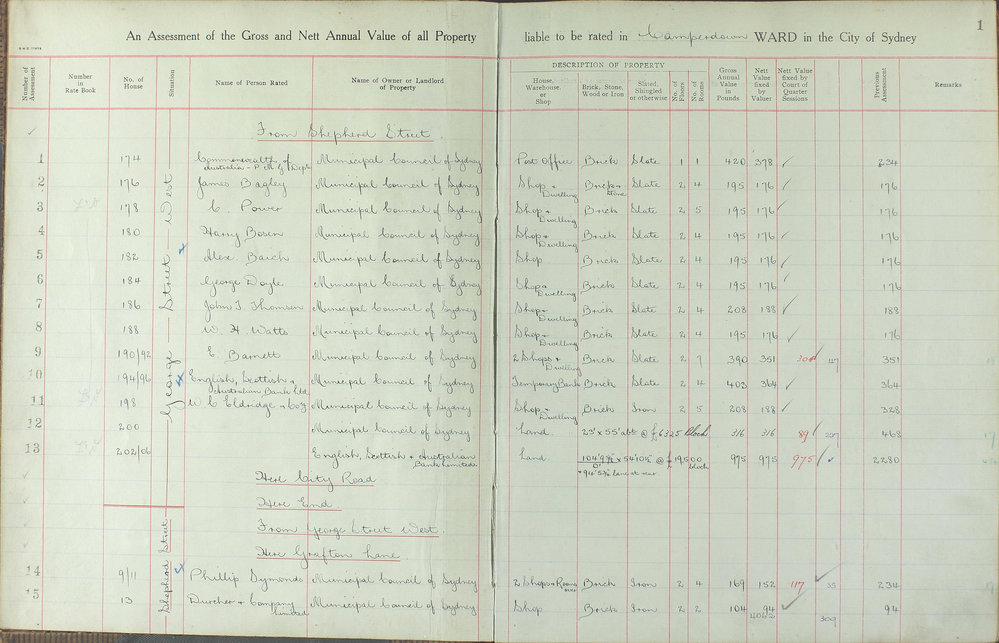 1
An Assessment of the Gross and Nett Annual Value of all Property liable to be rated in Camperdown WARD in the City of Sydney
DESCRIPTION OF PROPERTY
Number of Assessment | Number in Rate Book | No. of House | Situation | Name of Person Rated | Name of Owner or Landlord of Property | House, Warehouse, or Shop | Brick, Stone, Wood or Iron | Slated, Shingled or otherwise | No. of Floors | No. of Rooms | Gross Annual Value in Pounds | Nett Value fixed by Valuer | Nett Value fixed by Court of Quarter Sessions | Previous Assessment | Remarks
From Shepherd Street
George Street West
1 174 Commonwealth of Australia - P.M.G. Dept Municipal Council of Sydney Post Office Brick Slate 1 1 420 378 234
2 176 James Bagley Municipal Council of Sydney Shop & Dwelling Brick & Stone Slate 2 4 195 176 176
3 178 C. Power Municipal Council of Sydney Shop & Dwelling Brick Slate 2 5 195 176 176
4 180 Harry Bosen Municipal Council of Sydney Shop & Dwelling Brick Slate 2 4 195 176 176
5 182 Alex Baich Municipal Council of Sydney Shop Brick Slate 2 4 195 176 176
6 184 George Doyle Municipal Council of Sydney Shop & Dwelling Brick Slate 2 4 195 176 176
7 186 John T. Thomson Municipal Council of Sydney Shop & Dwelling Brick Slate 2 4 208 188 188
8 188 W. H. Watts Municipal Council of Sydney Shop & Dwelling Brick Slate 2 4 195 176 176
9 190/92 E. Barnett Municipal Council of Sydney 2 Shops & Dwelling Brick Slate 2 7 390 351 351
10 194/96 English, Scottish & Australian Bank Ltd Municipal Council of Sydney Temporary Bank Brick Slate 2 4 403 364 364
11 198 W. C. Eldridge & Coy Municipal Council of Sydney Shop & Dwelling Brick Iron 2 5 208 188 328
12 200 Municipal Council of Sydney Land 23' x 55' abt @ £6325 Block 316 316 89 227 468
13 202/06 English, Scottish & Australian Bank Limited Land 104'9½" x 54'10½" @ £19500 block 975 975 975 2280
+ 94'5½" lane at rear
Here City Road
Here End
From George Street West
Here Grafton Lane
Shepherd Street
14 9/11 Phillip Symonds Municipal Council of Sydney 2 Shops & Rooms over Brick Iron 2 4 169 152 117 35 234
15 13 Durcher & Company Limited Municipal Council of Sydney Shop Brick Iron 2 2 104 94 94
309